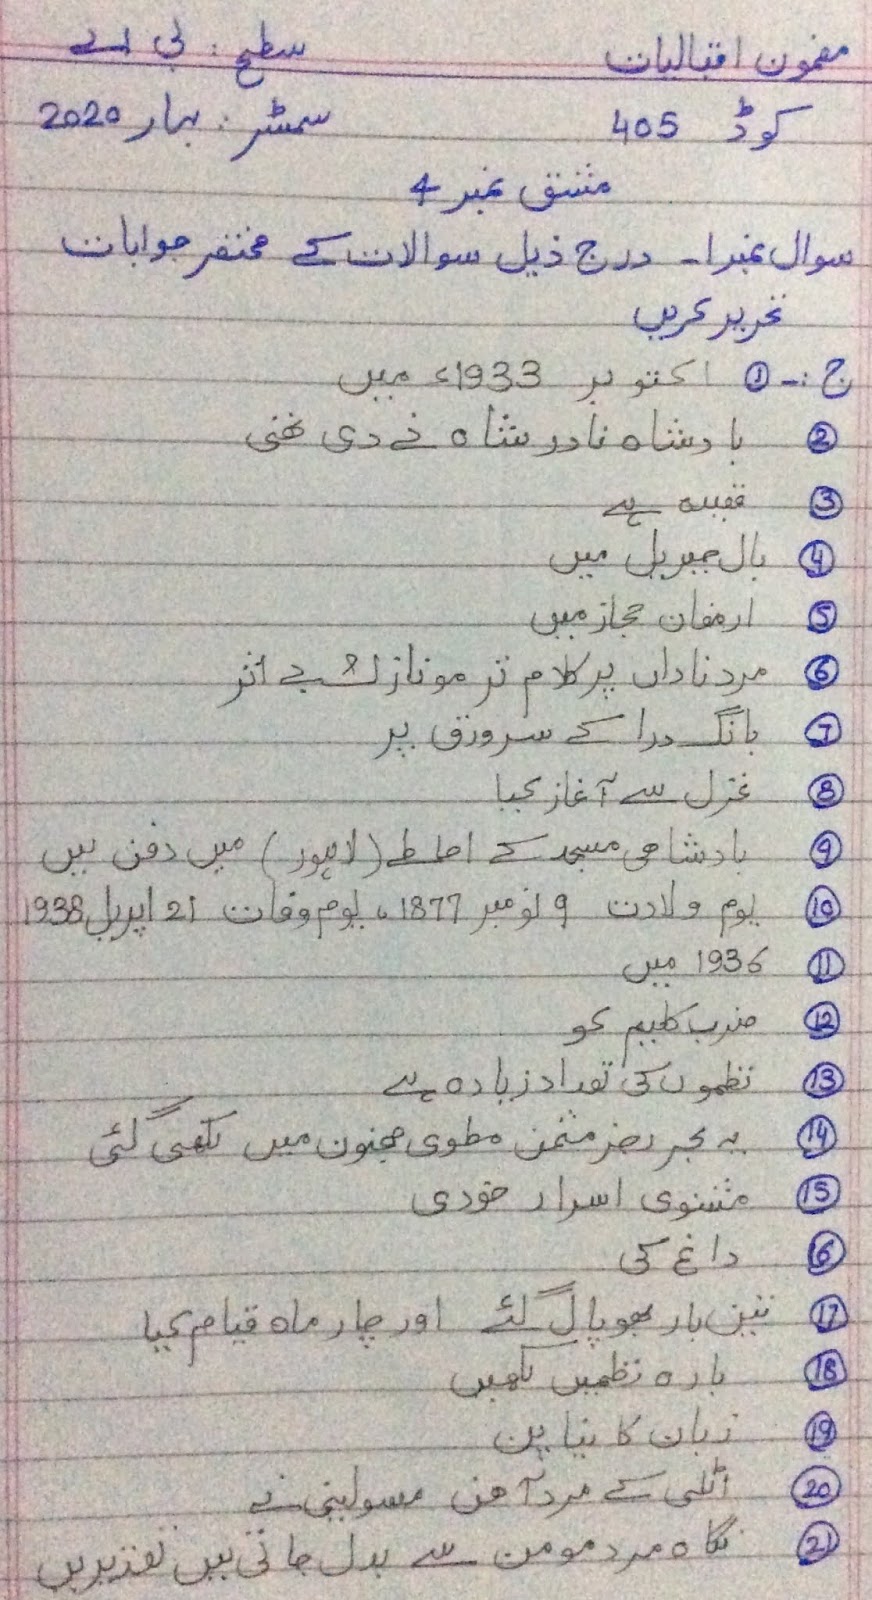 مضمون اقبالیات سطح: بی اے
کوڈ 405 سمسٹر: بہار 2020
مشق نمبر 4
سوال نمبر1۔ درج ذیل سوالات کے مختصر جوابات
تحریر کریں
ج:- ① اکتوبر 1933ء میں
② بادشاہ نادر شاہ نے دی تھی
③ قصیدہ ہے
④ بال جبریل میں
⑤ ارمغان حجاز میں
⑥ مرد ناداں پر کلام نرم و نازک بے اثر
⑦ بانگ درا کے سرورق پر
⑧ غزل سے آغاز کیا
⑨ بادشاہی مسجد کے احاطے (لاہور) میں دفن ہیں
⑩ یوم ولادت 9 نومبر 1877، یوم وفات 21 اپریل 1938
⑪ 1936 میں
⑫ ضرب کلیم کو
⑬ نظموں کی تعداد زیادہ ہے
⑭ یہ بحر رجز مثمن مطوی مجنون میں لکھی گئی
⑮ مثنوی اسرار خودی
⑯ داغ کی
⑰ تین بار بھوپال گئے اور چار ماہ قیام کیا
⑱ بارہ نظمیں لکھیں
⑲ زبان کا نیا پن
⑳ اٹلی کے مرد آھن مسولینی نے
㉑ نگاہ مرد مومن سے بدل جاتی ہیں تقدیریں